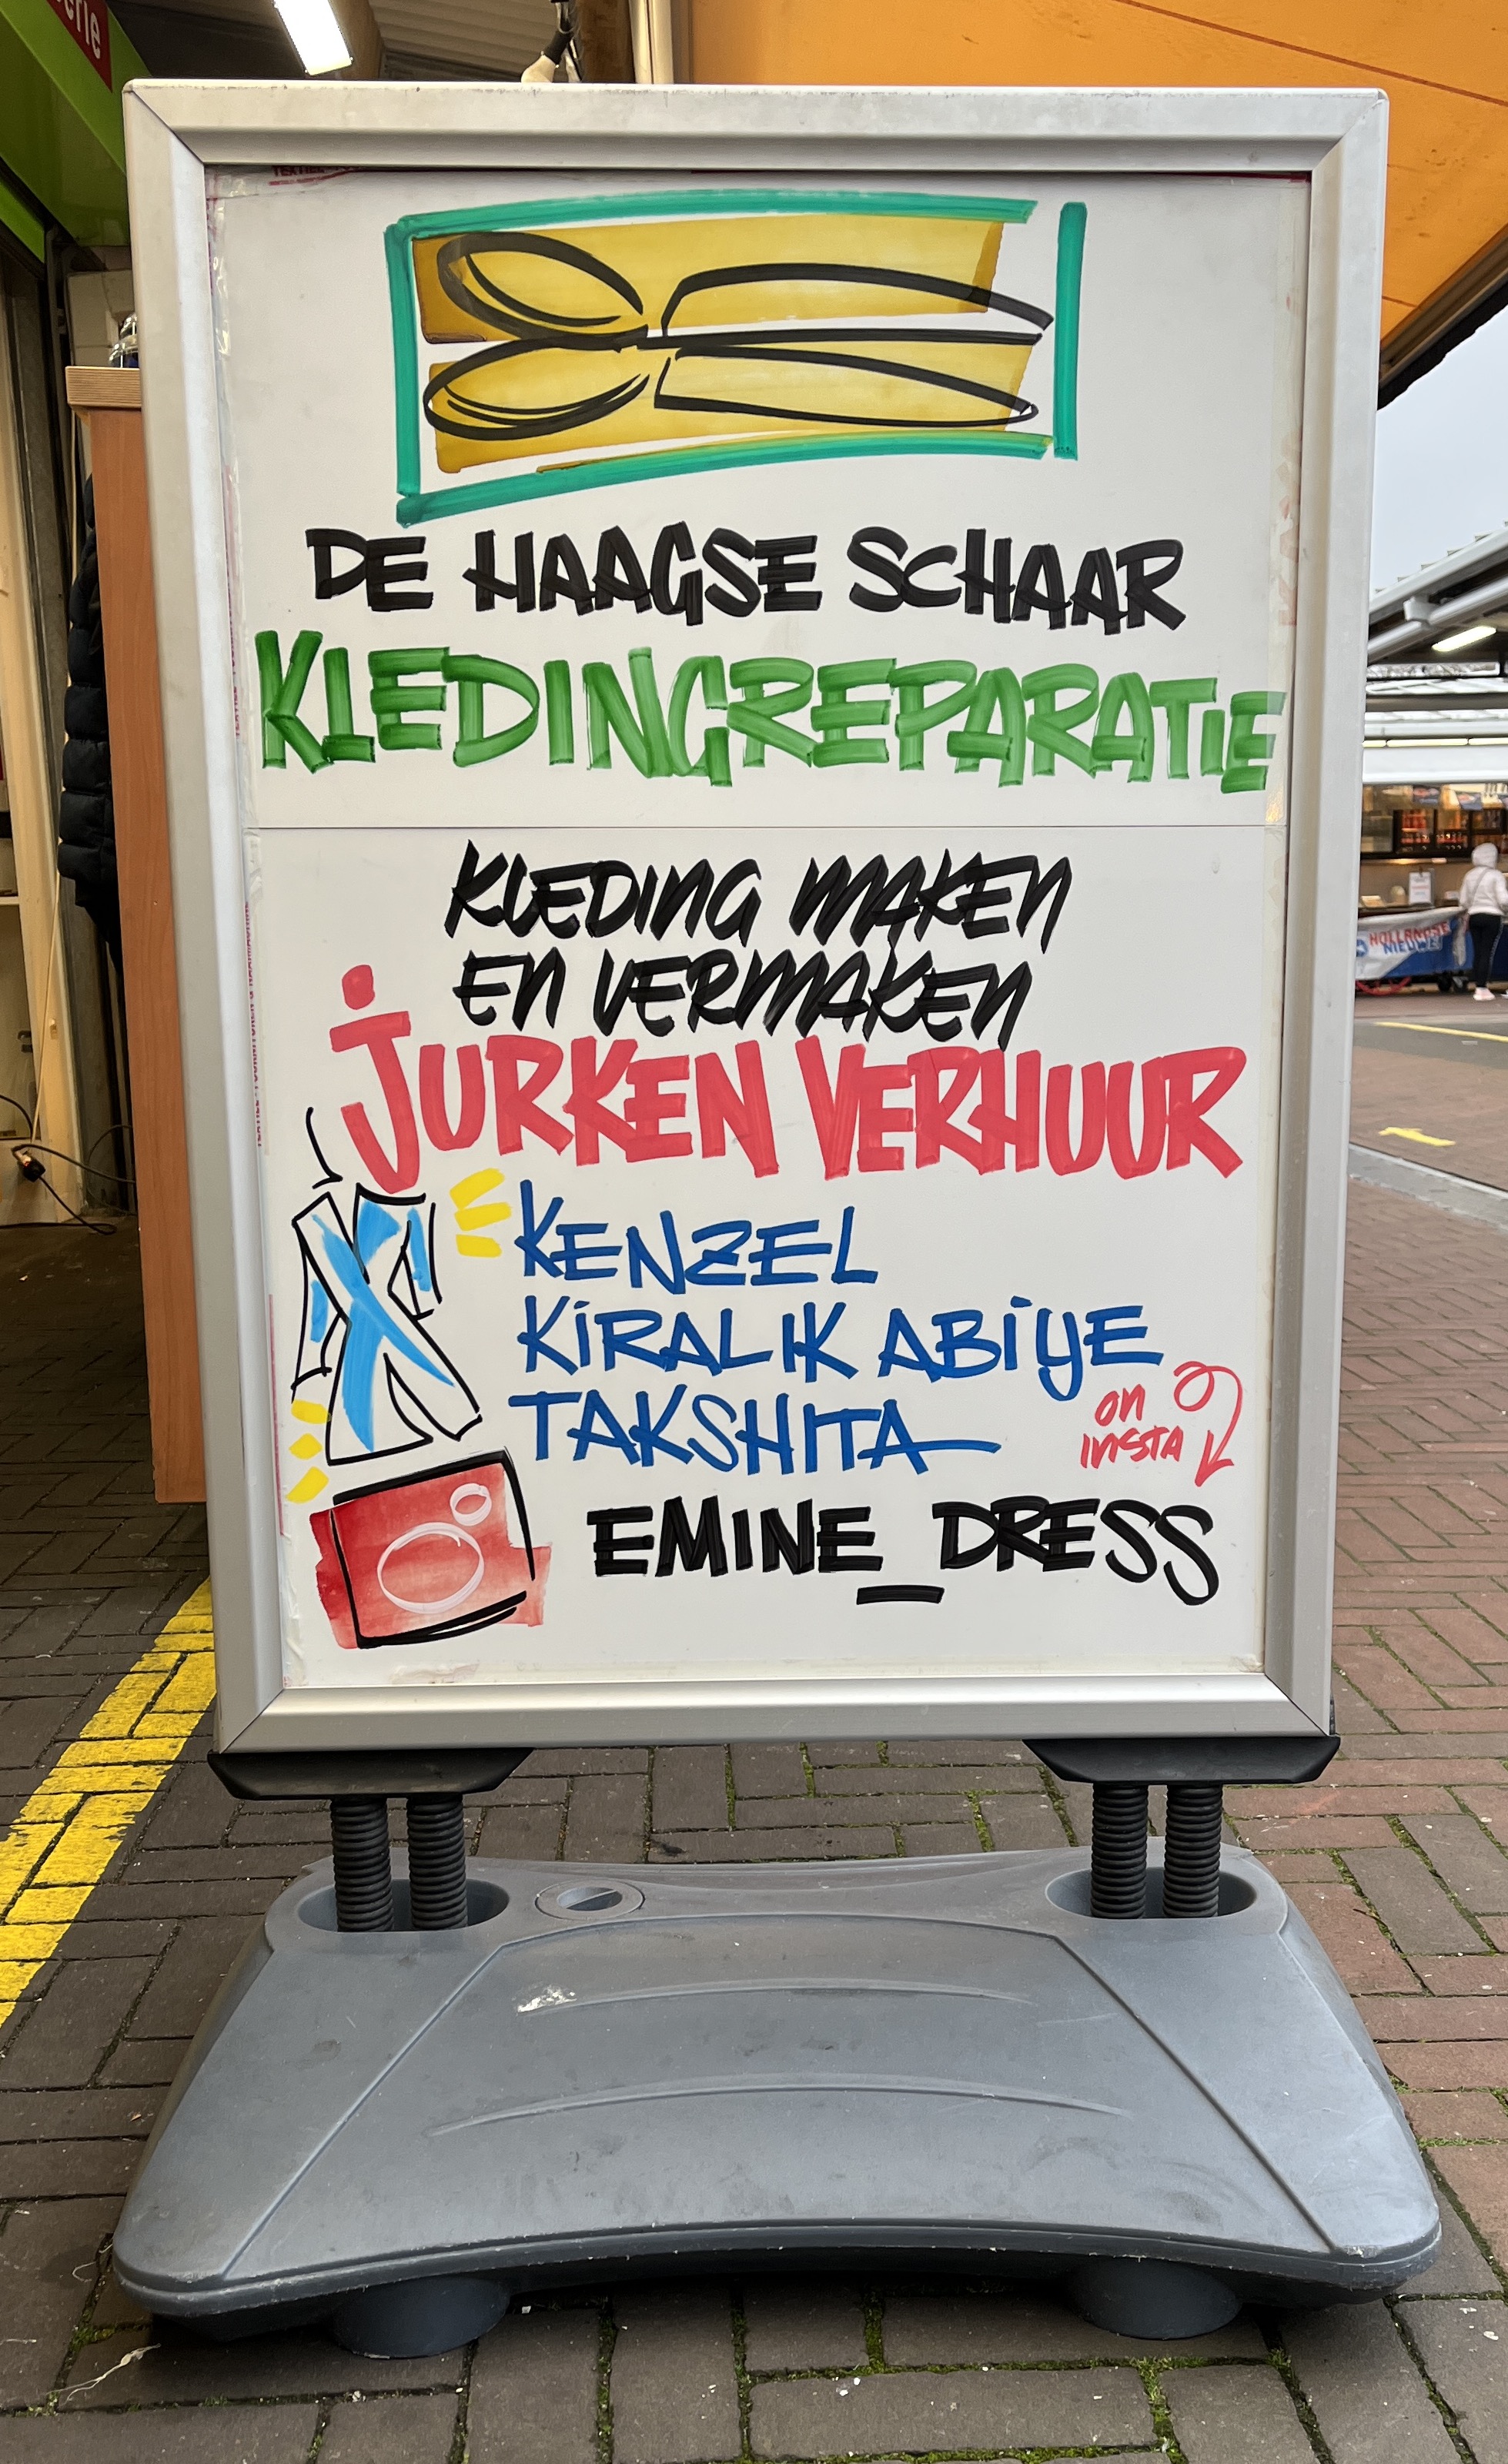 DE HAAGSE SCHAAR
KLEDINGREPARATIE
KLEDING MAKEN
EN VERMAKEN
JURKEN VERHUUR
KENZEL
KİRALIK ABİYE
TAKSHITA
on
insta
EMINE_DRESS
HOLLANDSE
NIEUWE